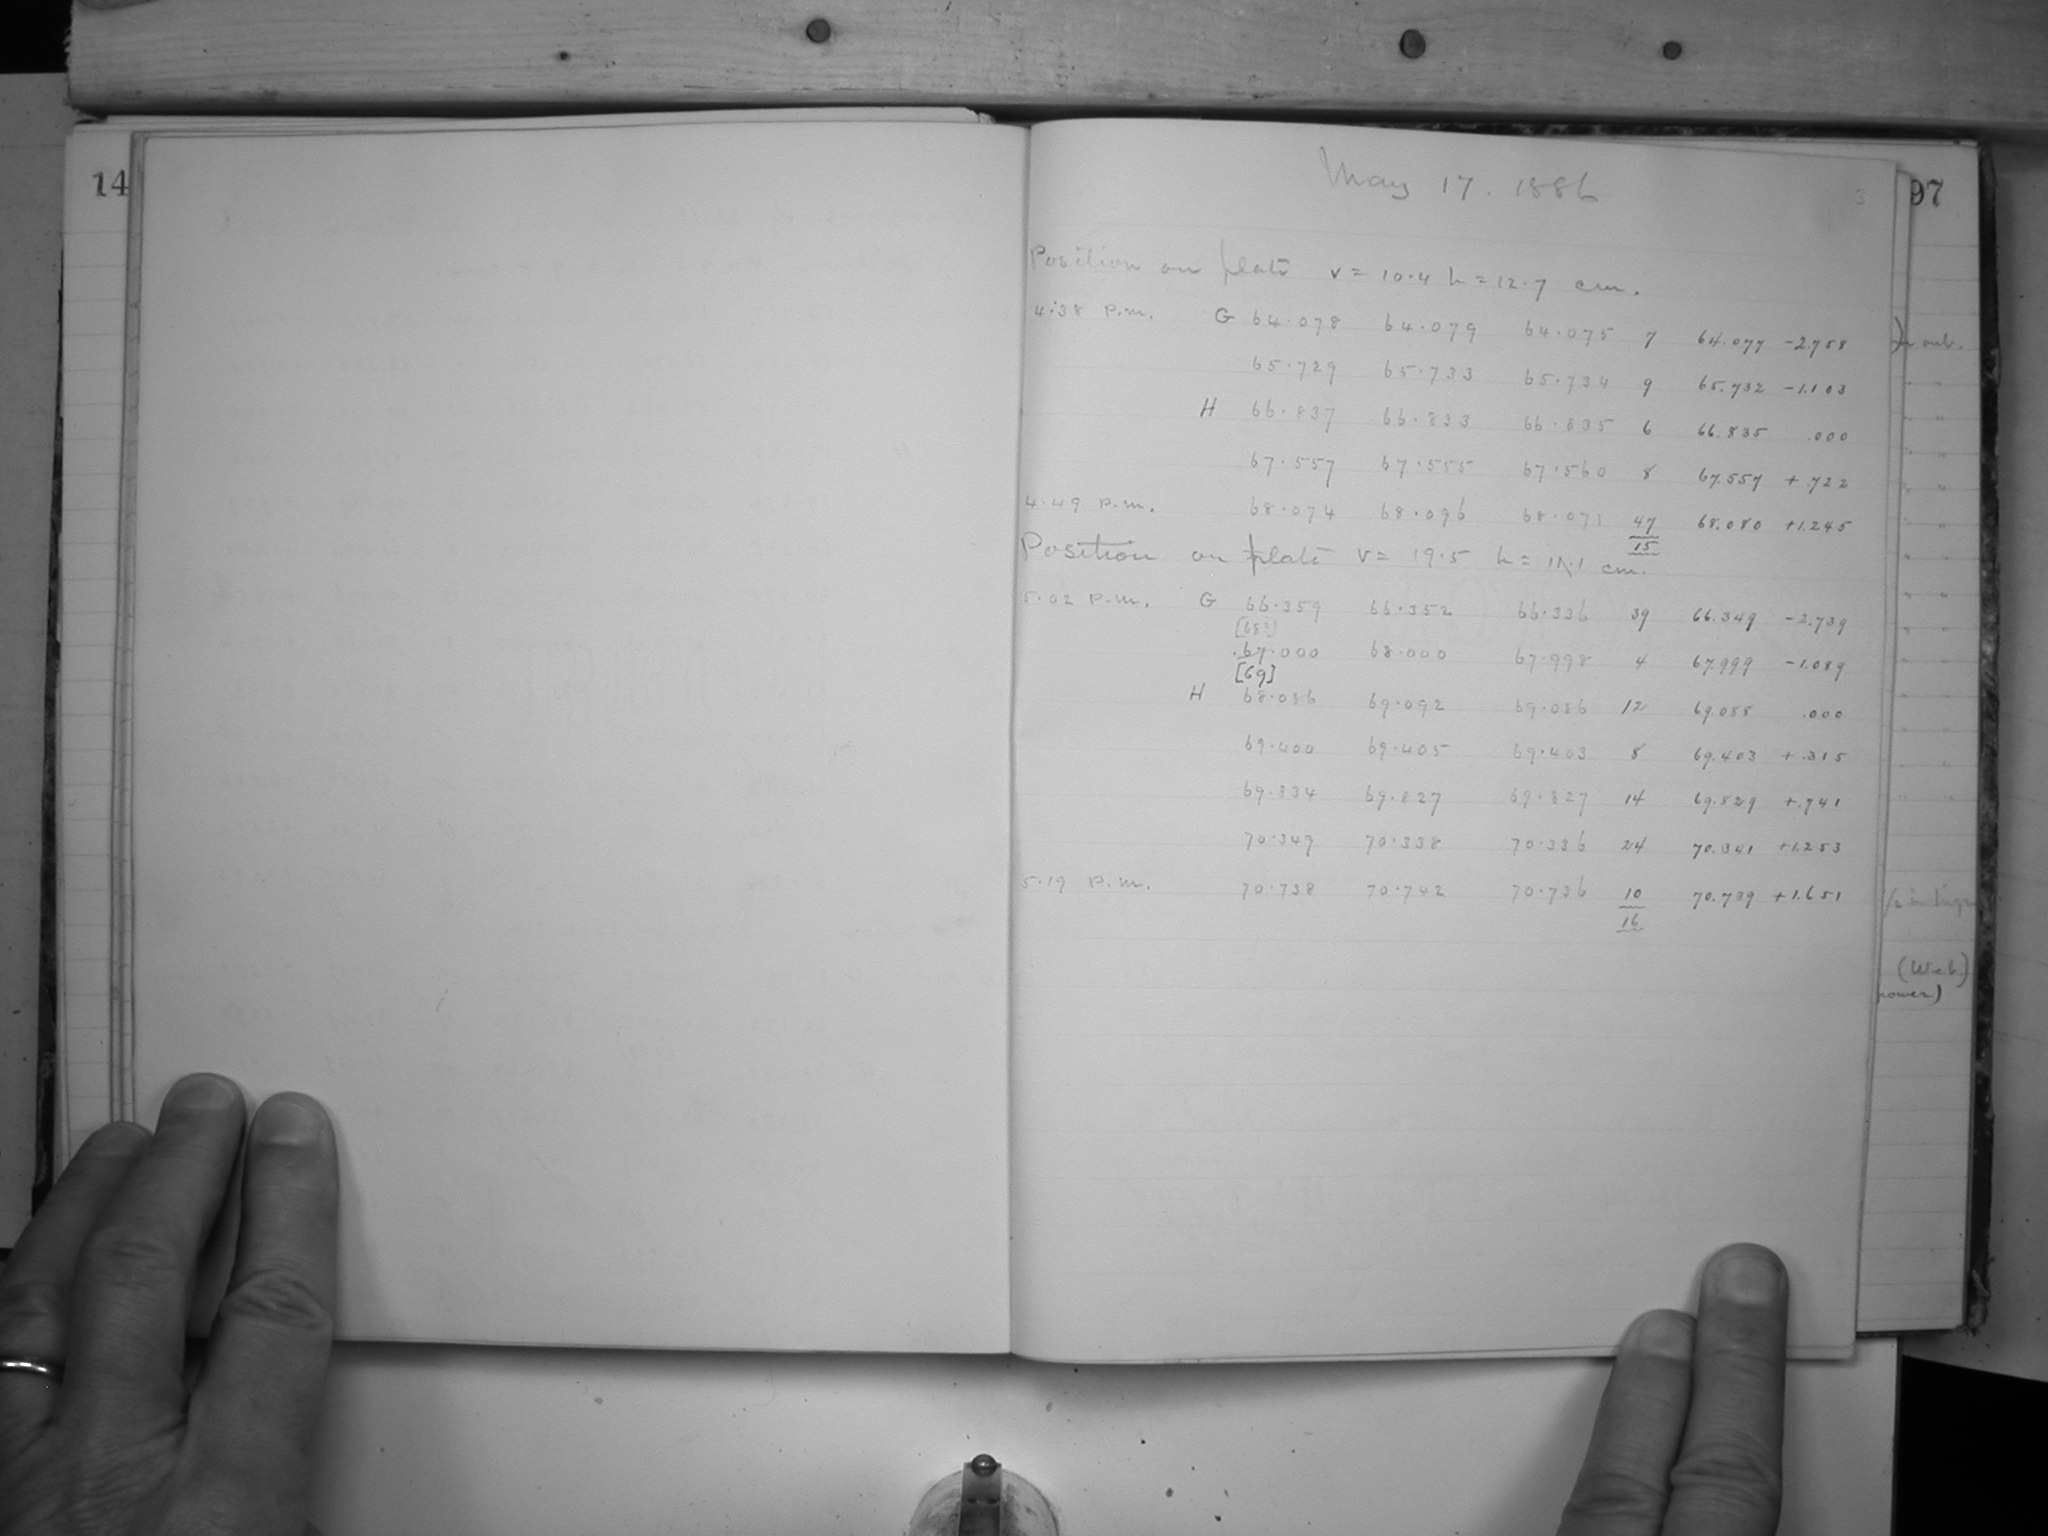 14
May 17. 1886
3
97
Position on plate v = 10.4 h = 12.7 cm.
4.38 P.m. G 64.078 64.079 64.075 7 64.077 -2.758
65.729 65.733 65.734 9 65.732 -1.103
H 66.837 66.833 66.835 6 66.835 .000
67.557 67.555 67.560 8 67.557 +.722
4.49 P.m. 68.074 68.096 68.071 47 68.080 +1.245
15
Position on plate v = 19.5 h = 11.1 cm.
5.02 P.m. G 66.359 66.352 66.336 39 66.349 -2.739
[68?]
67.000 68.000 67.998 4 67.999 -1.089
[69]
H 68.086 69.092 69.086 12 69.088 .000
69.400 69.405 69.403 8 69.403 +.315
69.834 69.827 69.827 14 69.829 +.741
70.347 70.338 70.336 24 70.341 +1.253
5.19 P.m. 70.738 70.742 70.736 10 70.739 +1.651
16
(Web)
power)